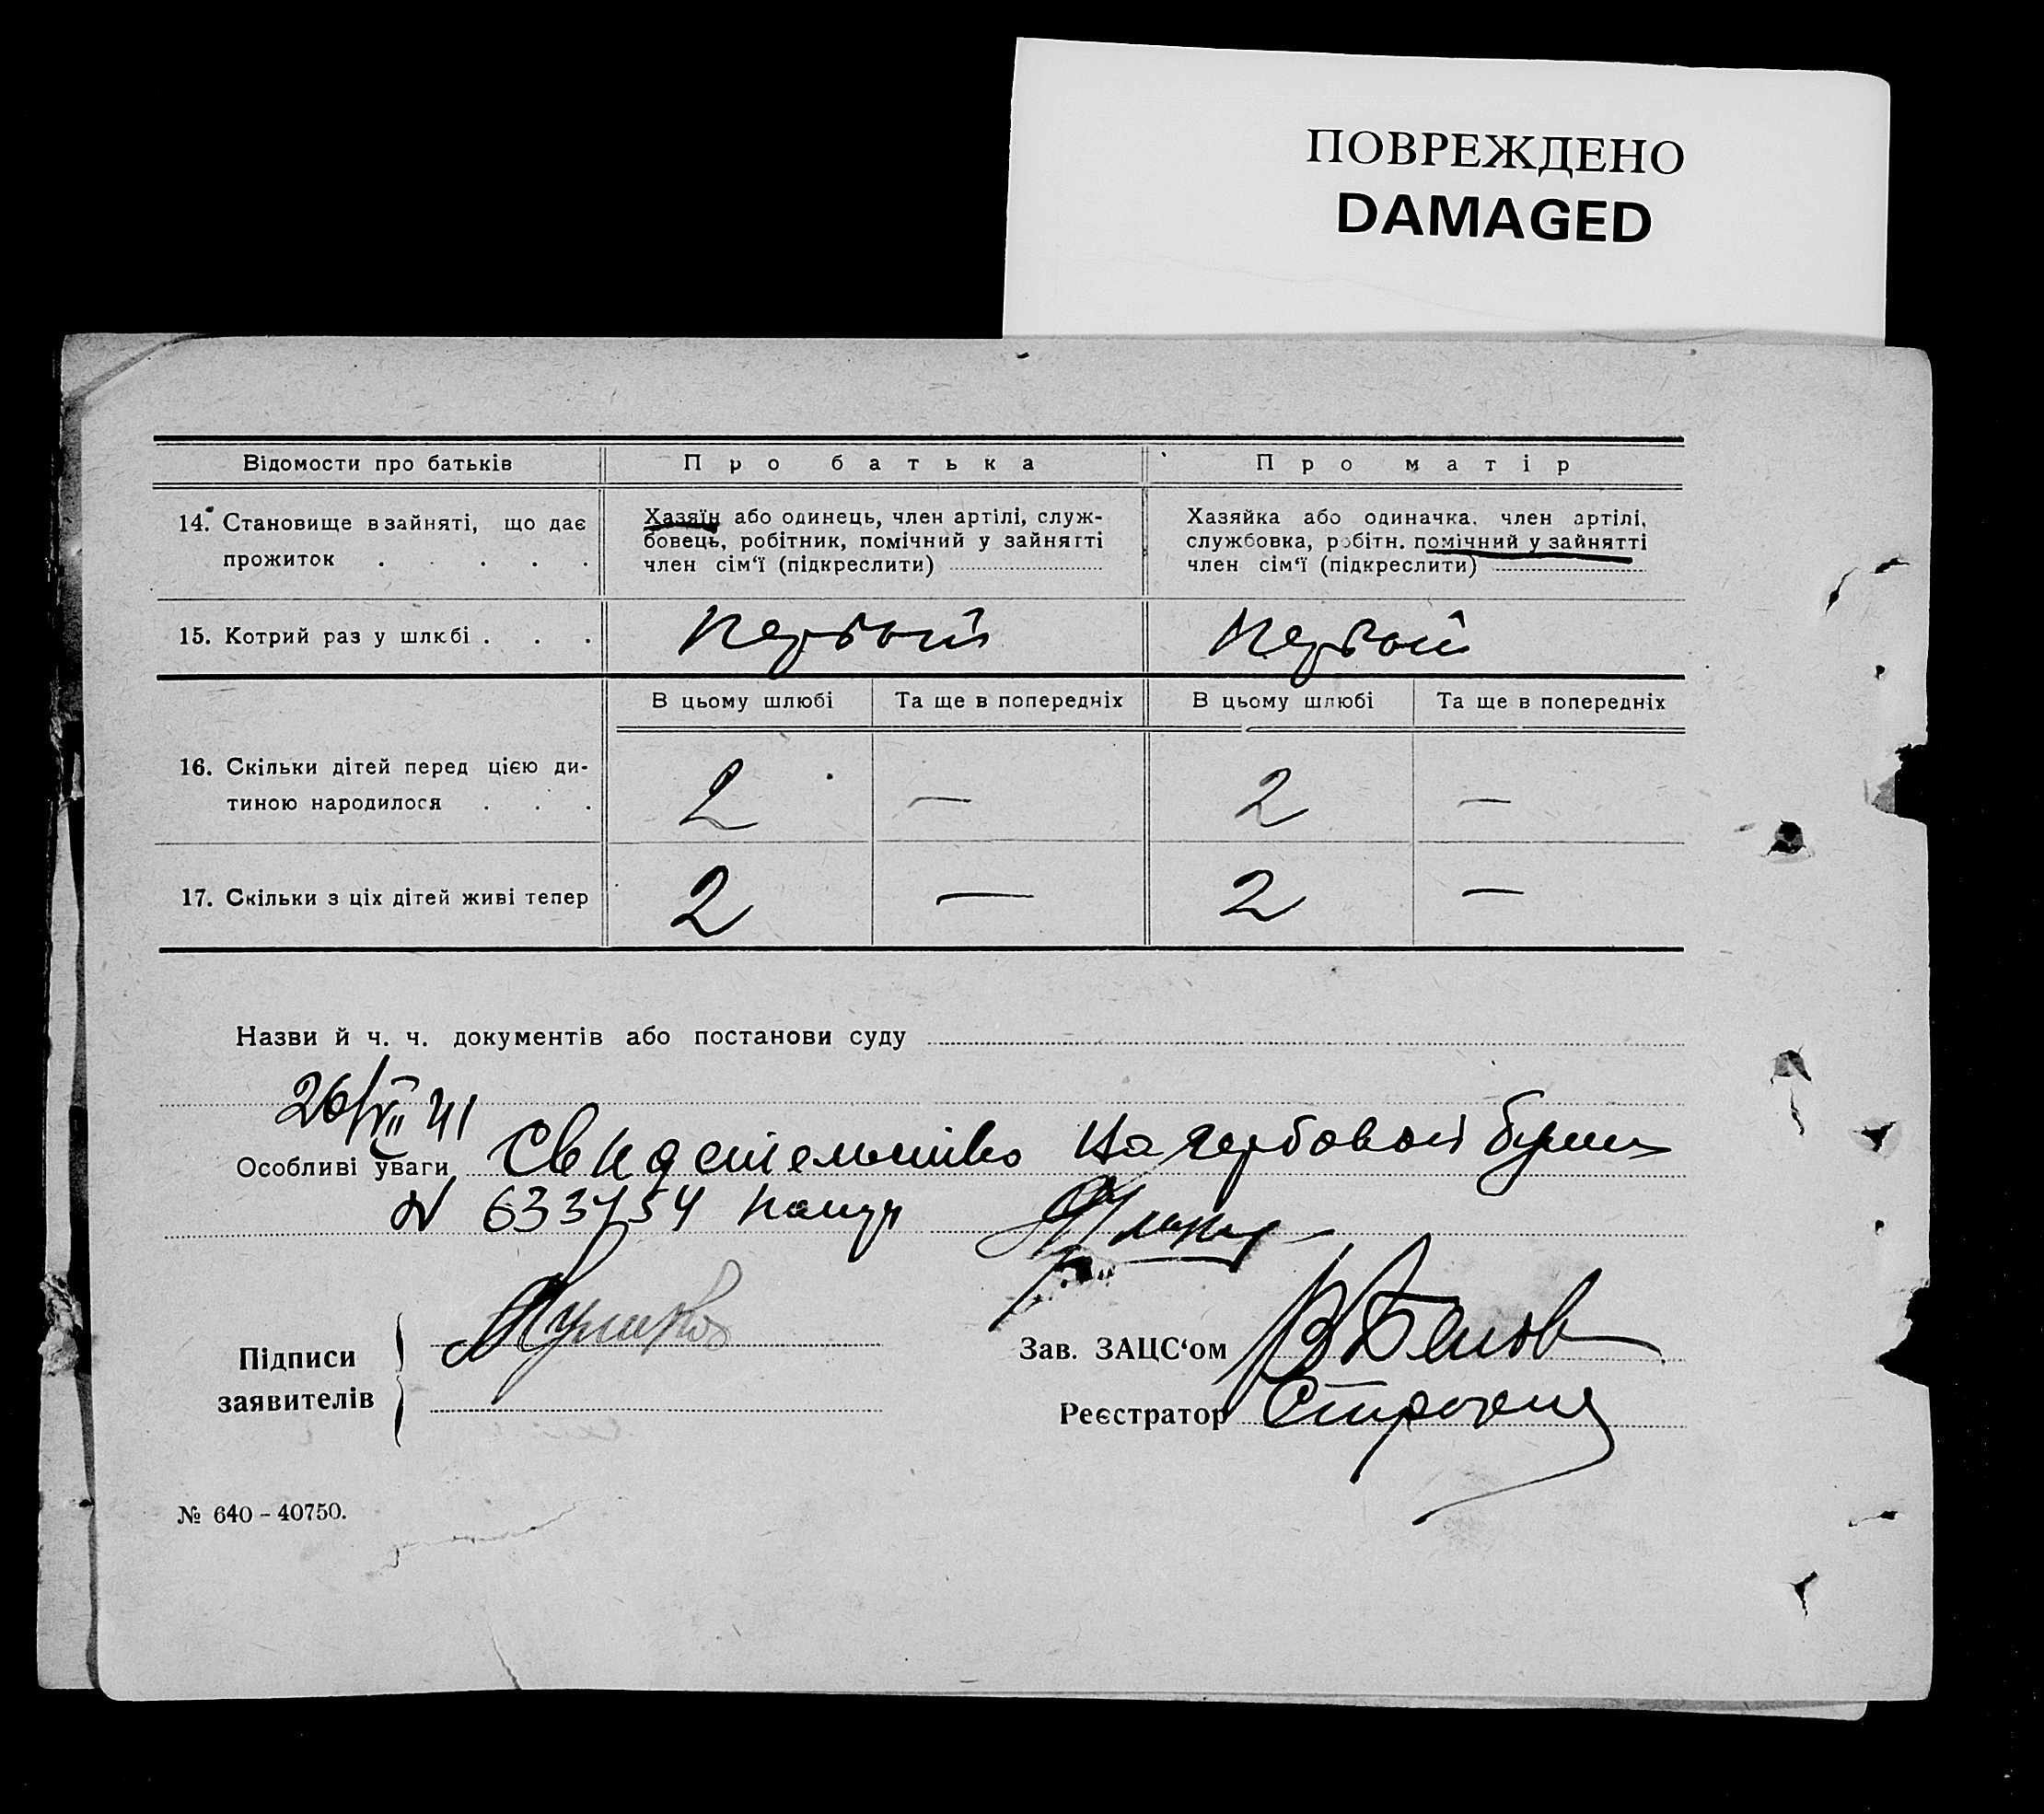 ПОВРЕЖДЕНО
DAMAGED
Відомости про батьків
Про батька
Про матір
14. Становище в зайняті, що дає
прожиток . . . . .
Хазяїн або одинець, член артілі, служ-
бовець, робітник, помічний у зайнятті
член сім‘ї (підкреслити)
Хазяйка або одиначка, член артілі,
службовка, робітн. помічний у зайнятті
член сім‘ї (підкреслити)
15. Котрий раз у шлюбі . . .
Первый
Первый
В цьому шлюбі
Та ще в попередніх
В цьому шлюбі
Та ще в попередніх
16. Скільки дітей перед цією ди-
тиною народилося . . .
2
—
2
—
17. Скільки з ціх дітей живі тепер
2
—
2
—
Назви й ч. ч. документів або постанови суду
26/VII 41
Особливі уваги Свидетельство на гербовой бумаге
N 633754
Підписи
заявителів
Зав. ЗАЦС‘ом
Реєстратор
№ 640 – 40750.